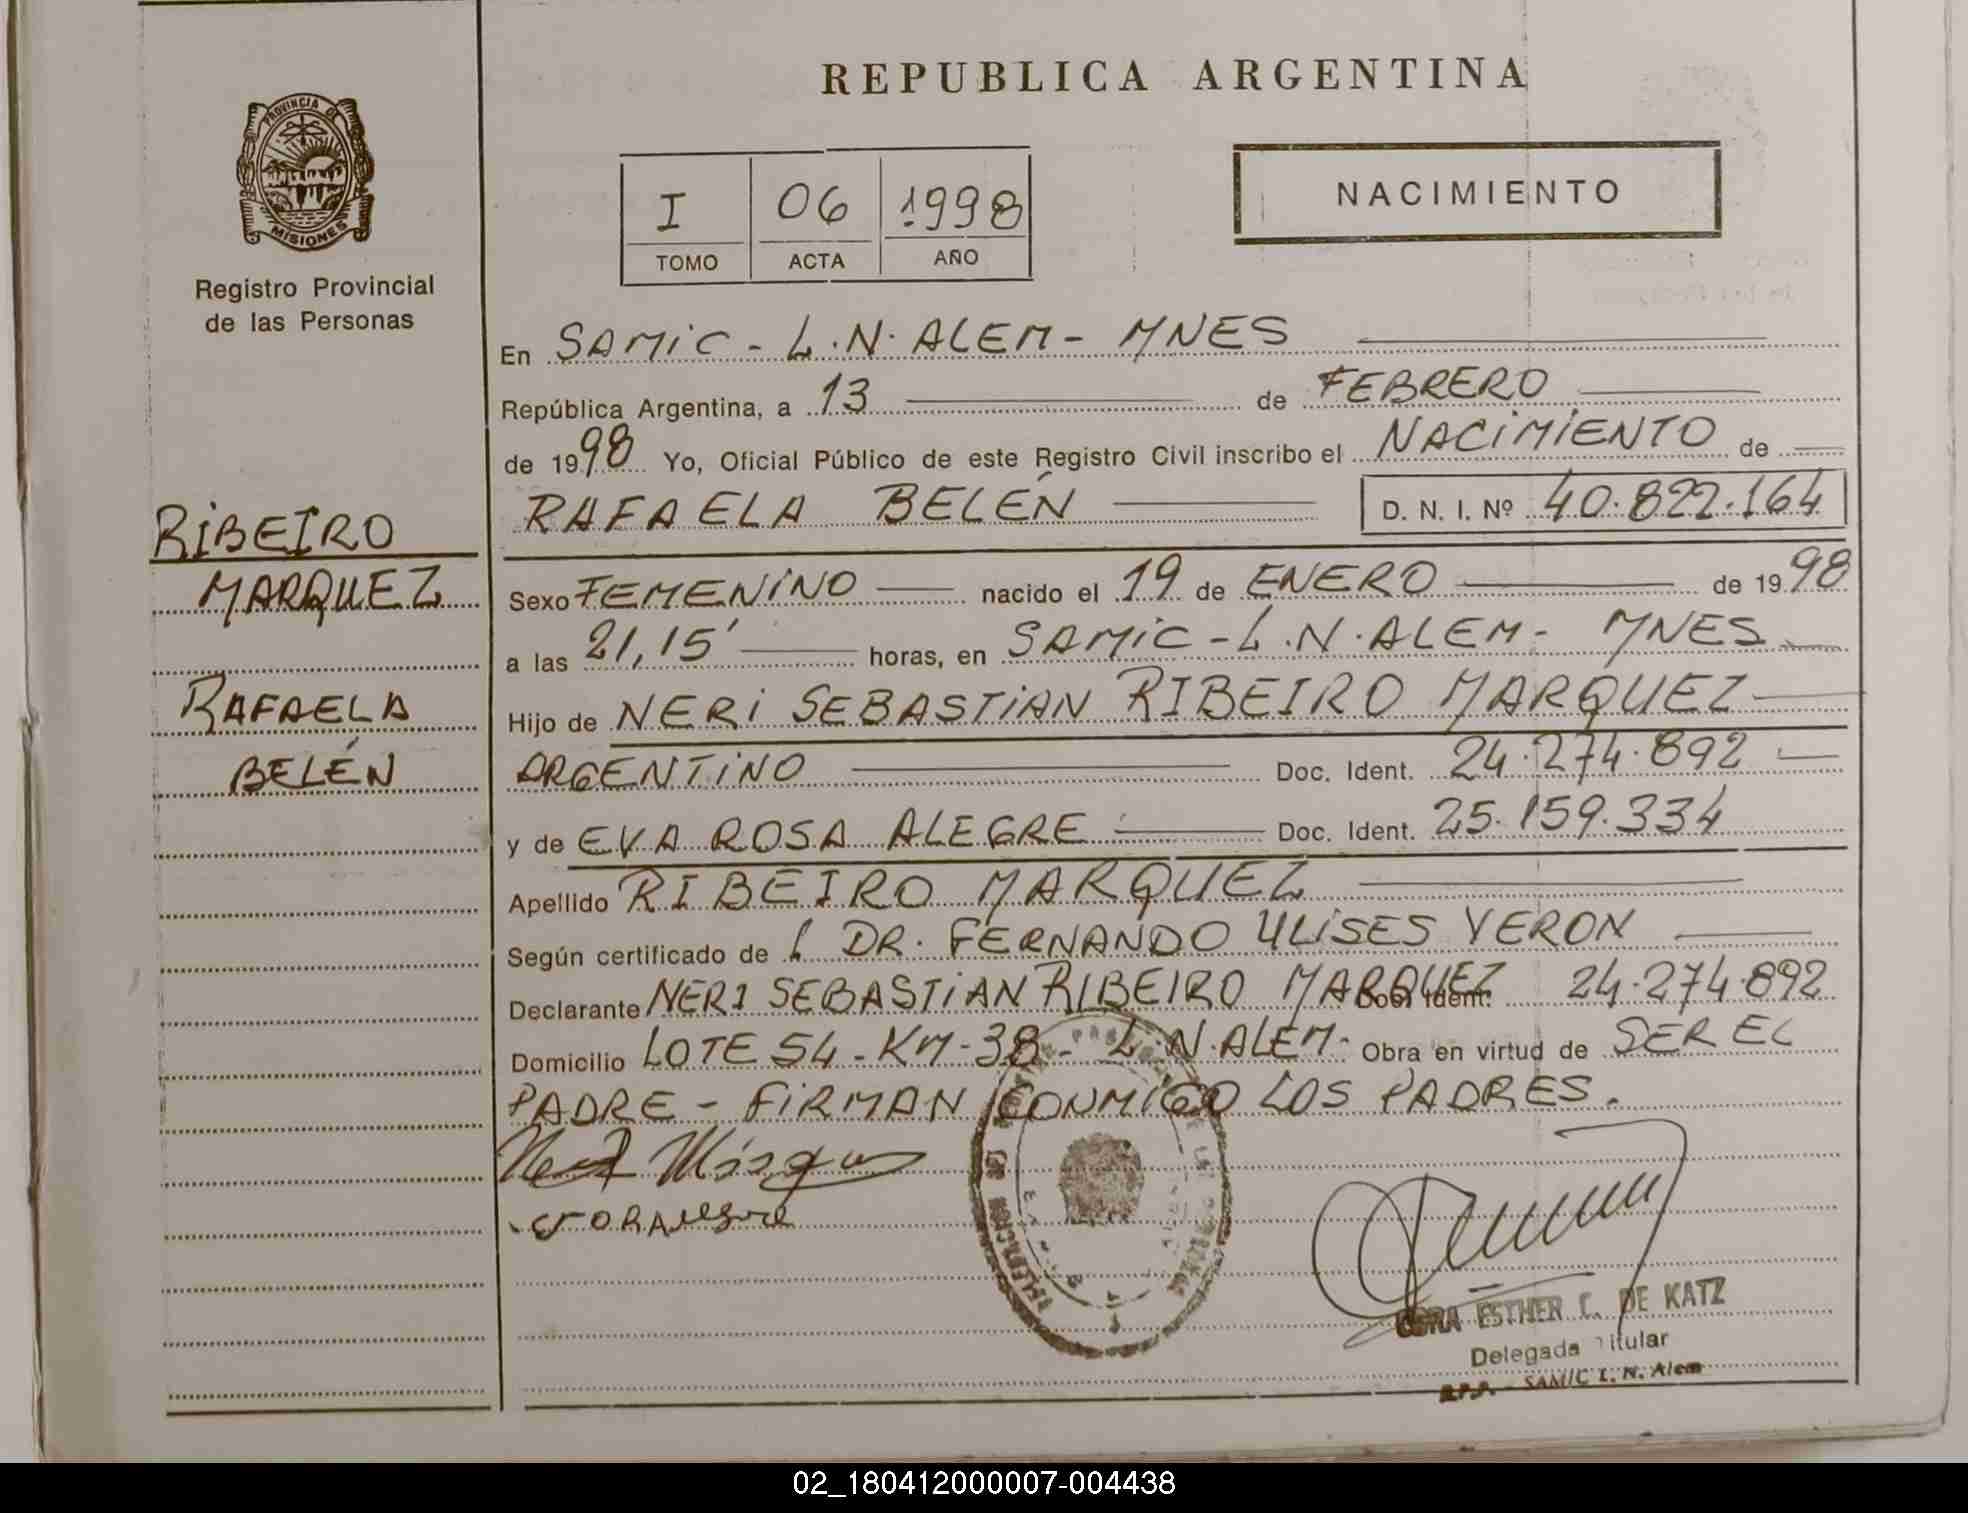 REPUBLICA ARGENTINA
PROVINCIA DE
MISIONES
Registro Provincial
de las Personas
I 06 1998
TOMO ACTA AÑO
NACIMIENTO
En SAMIC - L.N. ALEM - MNES
República Argentina, a 13 de FEBRERO
de 1998 Yo, Oficial Público de este Registro Civil inscribo el NACIMIENTO de
RAFAELA BELÉN D. N. I. Nº 40.822.164
RIBEIRO
MARQUEZ
RAFAELA
BELÉN
Sexo FEMENINO nacido el 19 de ENERO de 1998
a las 21,15' horas, en SAMIC - L.N. ALEM - MNES
Hijo de NERI SEBASTIAN RIBEIRO MARQUEZ
ARGENTINO Doc. Ident. 24.274.892
y de EVA ROSA ALEGRE Doc. Ident. 25.159.334
Apellido RIBEIRO MARQUEZ
Según certificado de L DR. FERNANDO ULISES VERON
Declarante NERI SEBASTIAN RIBEIRO MARQUEZ Doc. Ident. 24.274.892
Domicilio LOTE 54 - KM - 38 - L.N. ALEM - Obra en virtud de SER EL
PADRE - FIRMAN CONMIGO LOS PADRES.
ESTHER C. DE KATZ
Delegada Titular
R.P.P. - SAMIC L. N. Alem
02_180412000007-004438